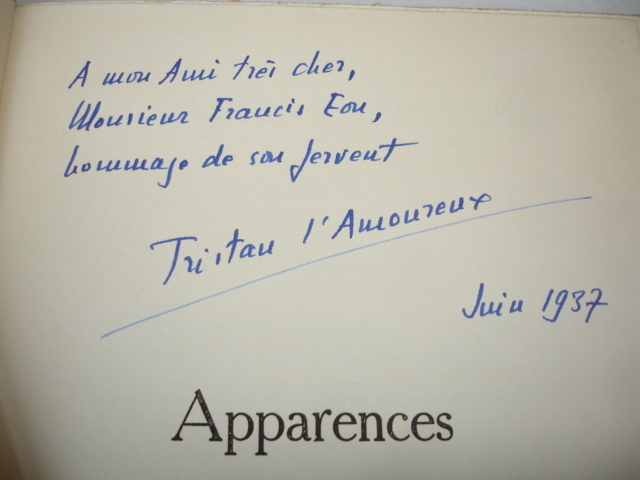 A mon Ami très cher,
Monsieur Francis Eon,
hommage de son fervent
Tristan l'Amoureux
Juin 1937
Apparences